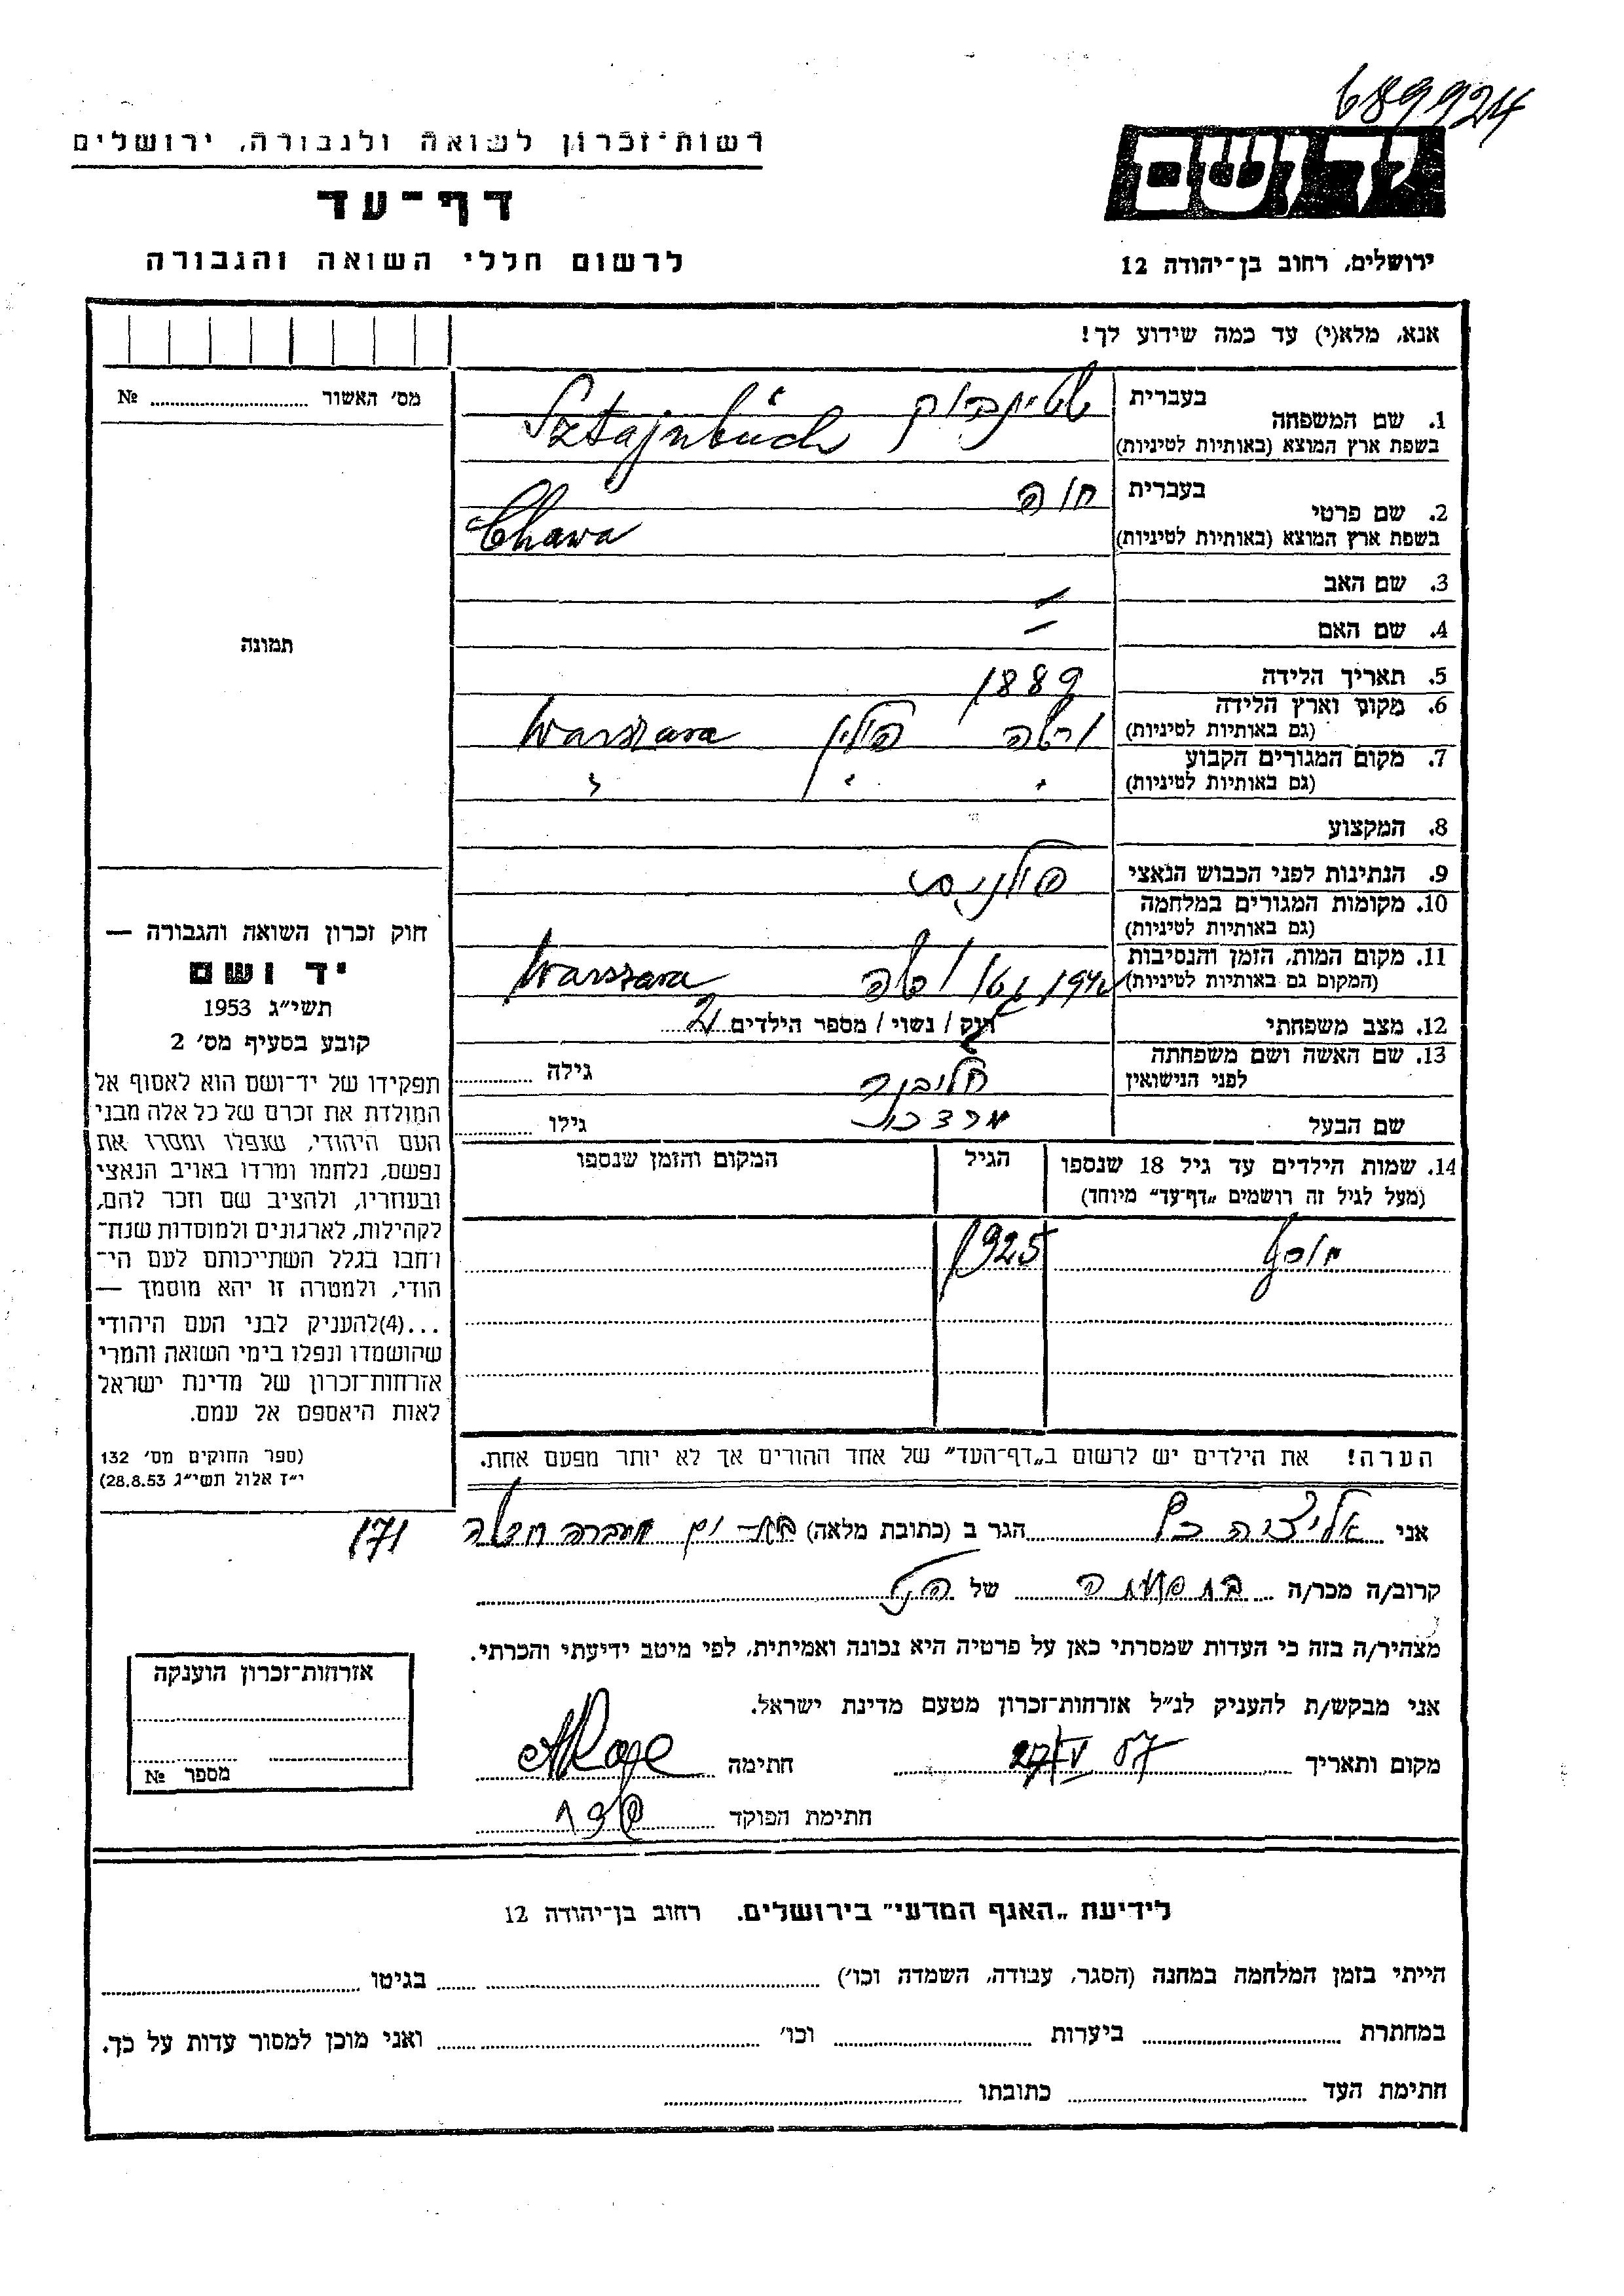 689924
רשות־זכרון לשואה ולגבורה, ירושלים
ידושם
דף־עד
לרשום חללי השואה והגבורה
ירושלים, רחוב בן־יהודה 12
אנא, מלא(י) עד כמה שידוע לך!
מס׳ האשור ........ №
1. שם המשפחה
בעברית
שטיינבוך
בשפת ארץ המוצא (באותיות לטיניות)
Sztajnbuch
2. שם פרטי
בעברית
חוה
בשפת ארץ המוצא (באותיות לטיניות)
Chawa
3. שם האב –
4. שם האם –
תמונה
5. תאריך הלידה 1889
6. מקום וארץ הלידה
(גם באותיות לטיניות)
ורשה פולין Warszawa
7. מקום המגורים הקבוע
(גם באותיות לטיניות)
8. המקצוע
9. הנתינות לפני הכבוש הנאצי
10. מקומות המגורים במלחמה
(גם באותיות לטיניות)
11. מקום המות, הזמן והנסיבות
(המקום גם באותיות לטיניות)
גטו ורשה Warszawa
12. מצב משפחתי
רווק / נשוי / מספר הילדים 2
13. שם האשה ושם משפחתה
לפני הנישואין
גילה
שם הבעל
מרדכי
גילו
14. שמות הילדים עד גיל 18 שנספו
(מעל לגיל זה רושמים „דף־עד” מיוחד)
הגיל
המקום והזמן שנספו
יוסף 1925
הערה! את הילדים יש לרשום ב„דף־העד” של אחד ההורים אך לא יותר מפעם אחת.
חוק זכרון השואה והגבורה —
יד ושם
תשי״ג 1953
קובע בסעיף מס׳ 2
תפקידו של יד־ושם הוא לאסוף אל
המולדת את זכרם של כל אלה מבני
העם היהודי, שנפלו ומסרו את
נפשם, נלחמו ומרדו באויב הנאצי
ובעוזריו, ולהציב שם וזכר להם,
לקהילות, לארגונים ולמוסדות שנח־
רחבו בגלל השתייכותם לעם הי־
הודי, ולמטרה זו יהא מוסמך —
...(4)להעניק לבני העם היהודי
שהושמדו ונפלו בימי השואה והמרי
אזרחות־זכרון של מדינת ישראל
לאות היאספם אל עמם.
(ספר החוקים מס׳ 132
י״ז אלול תשי״ג 28.8.53)
אני ........ הגר ב (כתובת מלאה) בת־ים 171
קרוב/ה מכר/ה ........ של
מצהיר/ה בזה כי העדות שמסרתי כאן על פרטיה היא נכונה ואמיתית, לפי מיטב ידיעתי והכרתי.
אני מבקש/ת להעניק לנ״ל אזרחות־זכרון מטעם מדינת ישראל.
מקום ותאריך ........ חתימה
חתימת הפוקד
אזרחות־זכרון הוענקה
מספר №
לידיעת „האגף המדעי” בירושלים. רחוב בן־יהודה 12
הייתי בזמן המלחמה במחנה (הסגר, עבודה, השמדה וכו׳) ........ בגיטו ........
במחתרת ........ ביערות ........ וכו׳ ........ ואני מוכן למסור עדות על כך.
חתימת העד ........ כתובתו ........